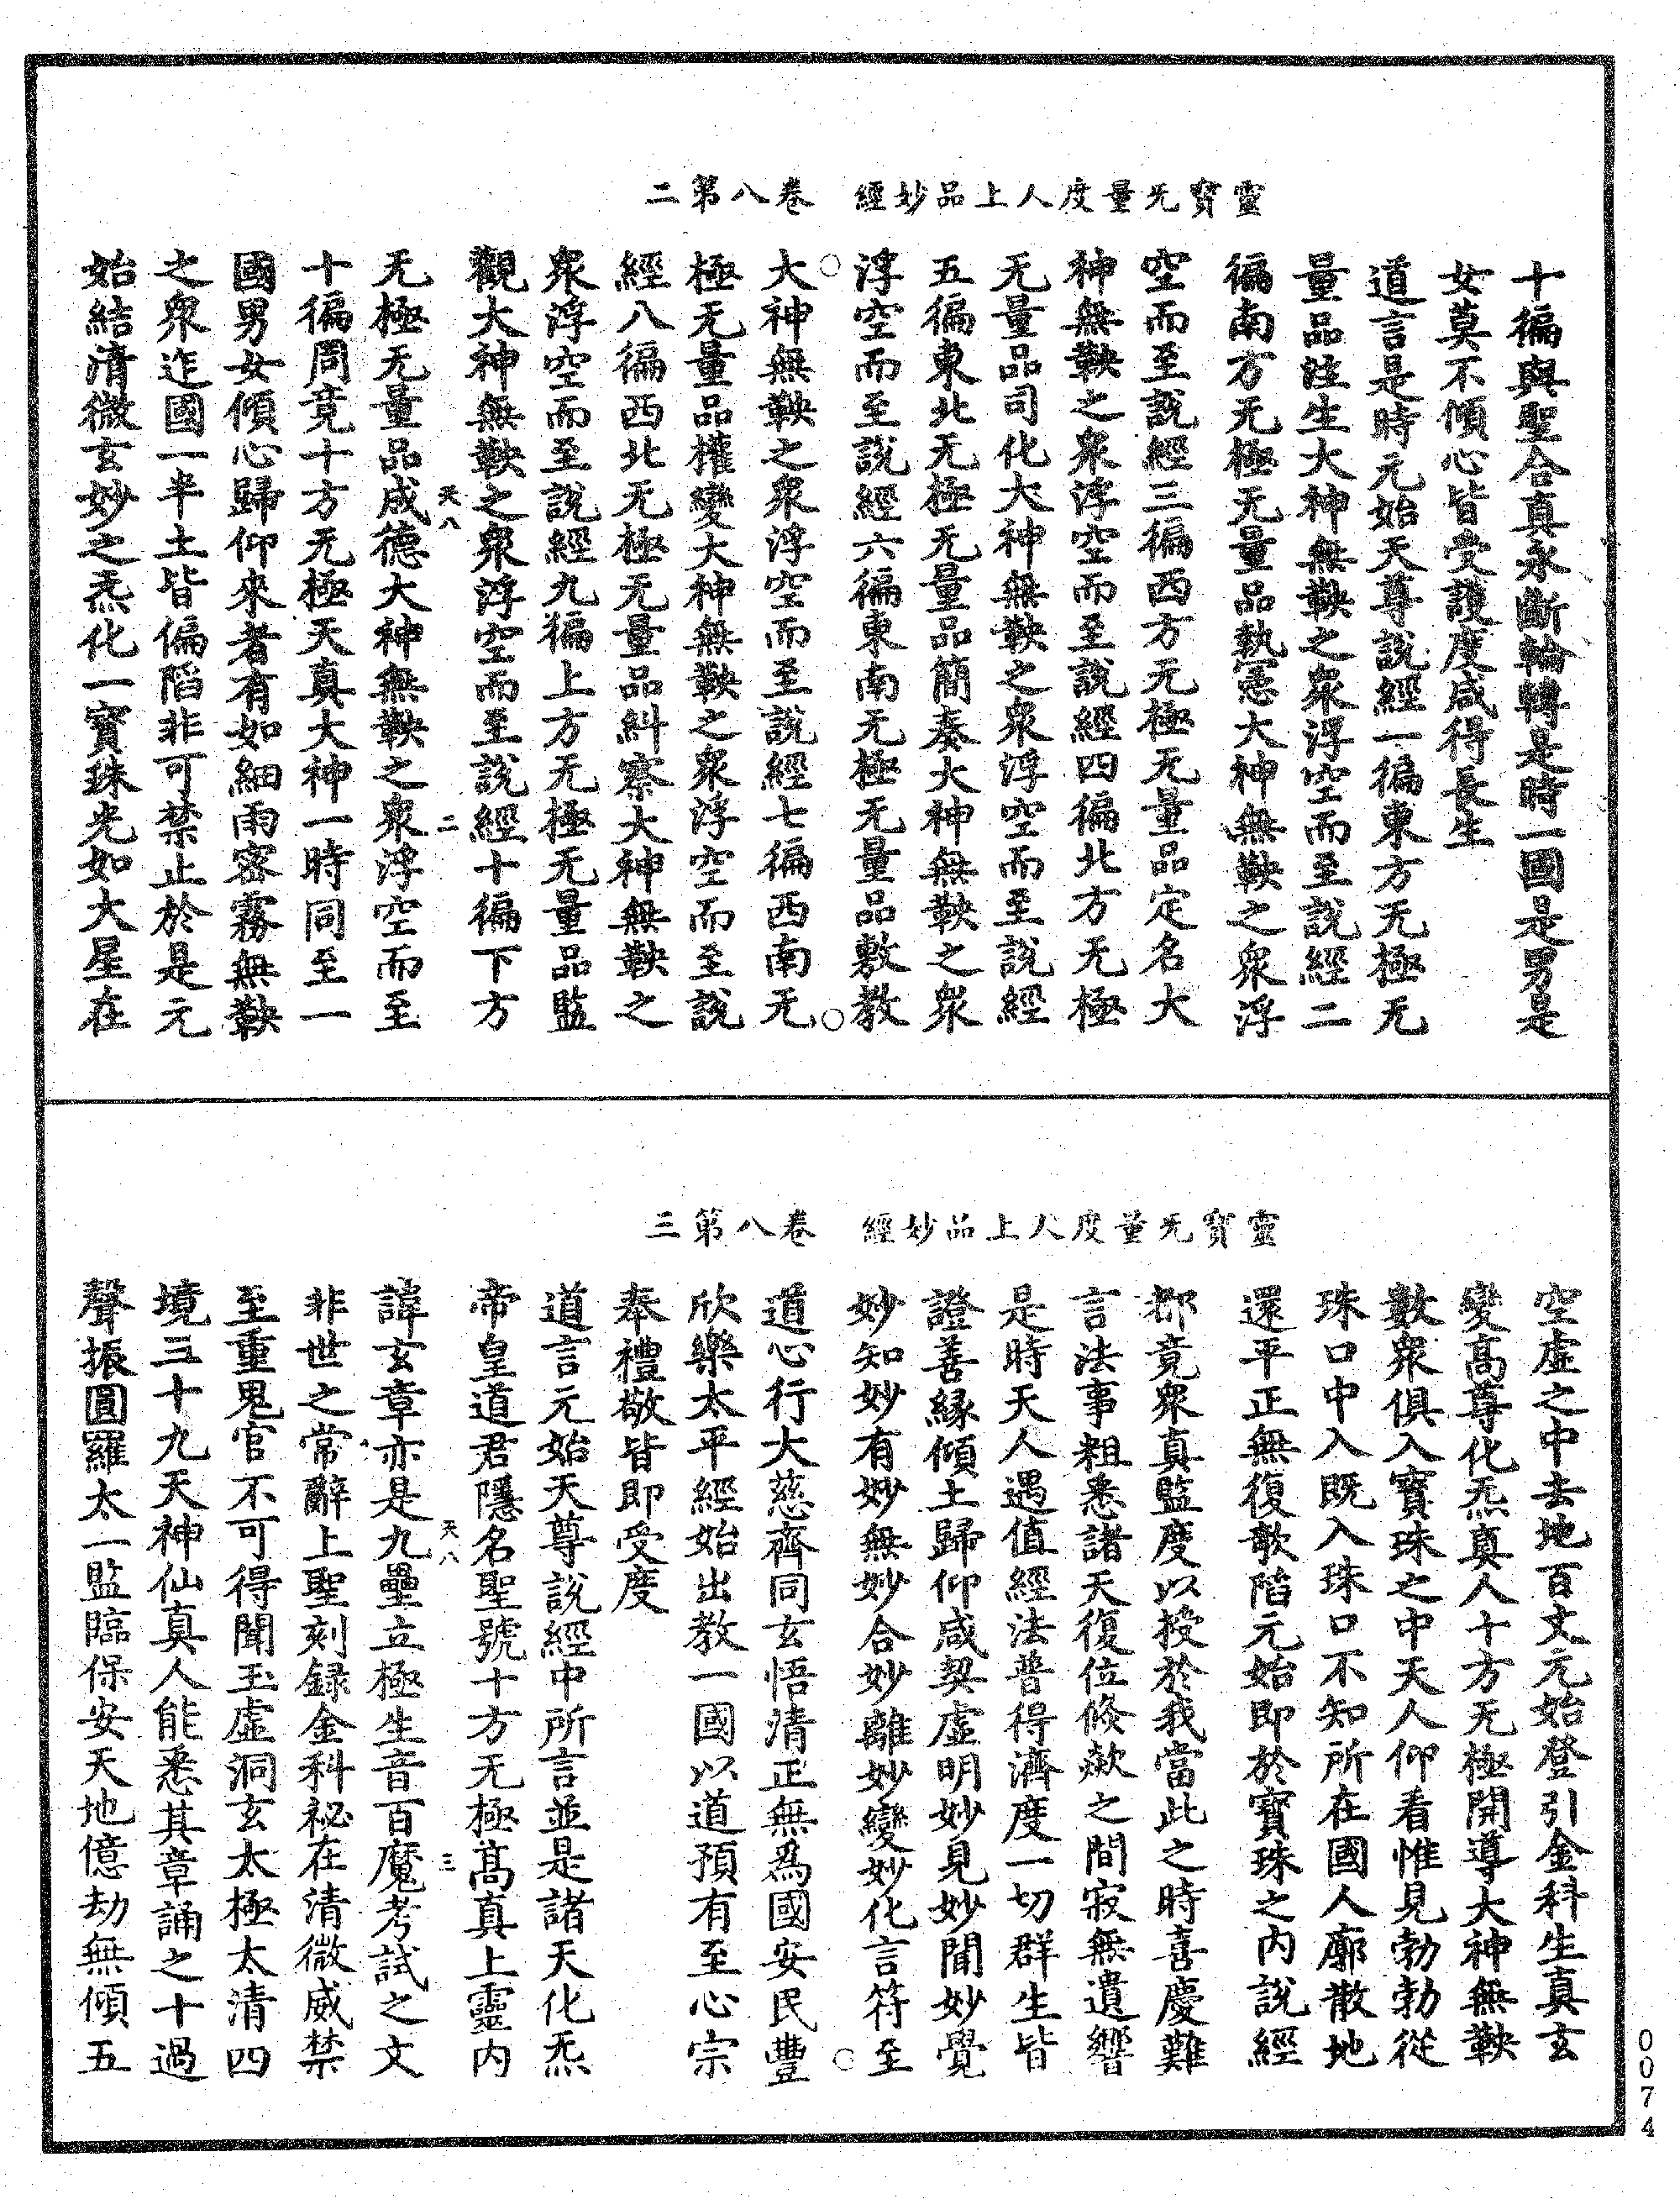 靈寶无量度人上品妙經　卷八第二
十徧與聖合真永斷輪轉是時一國是男是
女莫不傾心皆受護度咸得長生
道言是時元始天尊說經一徧東方无極无
量品注生大神無鞅之衆浮空而至說經二
徧南方无極无量品執憲大神無鞅之衆浮
空而至說經三徧西方无極无量品定名大
神無鞅之衆浮空而至說經四徧北方无極
无量品司化大神無鞅之衆浮空而至說經
五徧東北无極无量品簡奏大神無鞅之衆
浮空而至說經六徧東南无極无量品敷教
大神無鞅之衆浮空而至說經七徧西南无
極无量品權變大神無鞅之衆浮空而至說
經八徧西北无極无量品糾察大神無鞅之
衆浮空而至說經九徧上方无極无量品監
觀大神無鞅之衆浮空而至說經十徧下方
天八　二
无極无量品成德大神無鞅之衆浮空而至
十徧周竟十方无極天真大神一時同至一
國男女傾心歸仰來者有如細雨密霧無鞅
之衆迮國一半土皆偏陷非可禁止於是元
始結清微玄妙之炁化一寶珠光如大星在
靈寶无量度人上品妙經　卷八第三
空虛之中去地百丈元始登引金科生真玄
變高尊化炁真人十方无極開導大神無鞅
數衆俱入寶珠之中天人仰看惟見勃勃從
珠口中入既入珠口不知所在國人廓散地
還平正無復欹陷元始即於寶珠之內說經
都竟衆真監度以授於我當此之時喜慶難
言法事粗悉諸天復位倏歘之間寂無遺響
是時天人遇值經法普得濟度一切群生皆
證善緣傾土歸仰咸契虛明妙見妙聞妙覺
妙知妙有妙無妙合妙離妙變妙化言符至
道心行大慈齊同玄悟清正無為國安民豐
欣樂太平經始出教一國以道預有至心宗
奉禮敬皆即受度
道言元始天尊說經中所言並是諸天化炁
帝皇道君隱名聖號十方无極高真上靈內
天八　三
諱玄章亦是九壘立極生音百魔考試之文
非世之常辭上聖刻録金科祕在清微威禁
至重鬼官不可得聞玉虛洞玄太極太清四
境三十九天神仙真人能悉其章誦之十過
聲振圓羅太一監臨保安天地億劫無傾五
0074